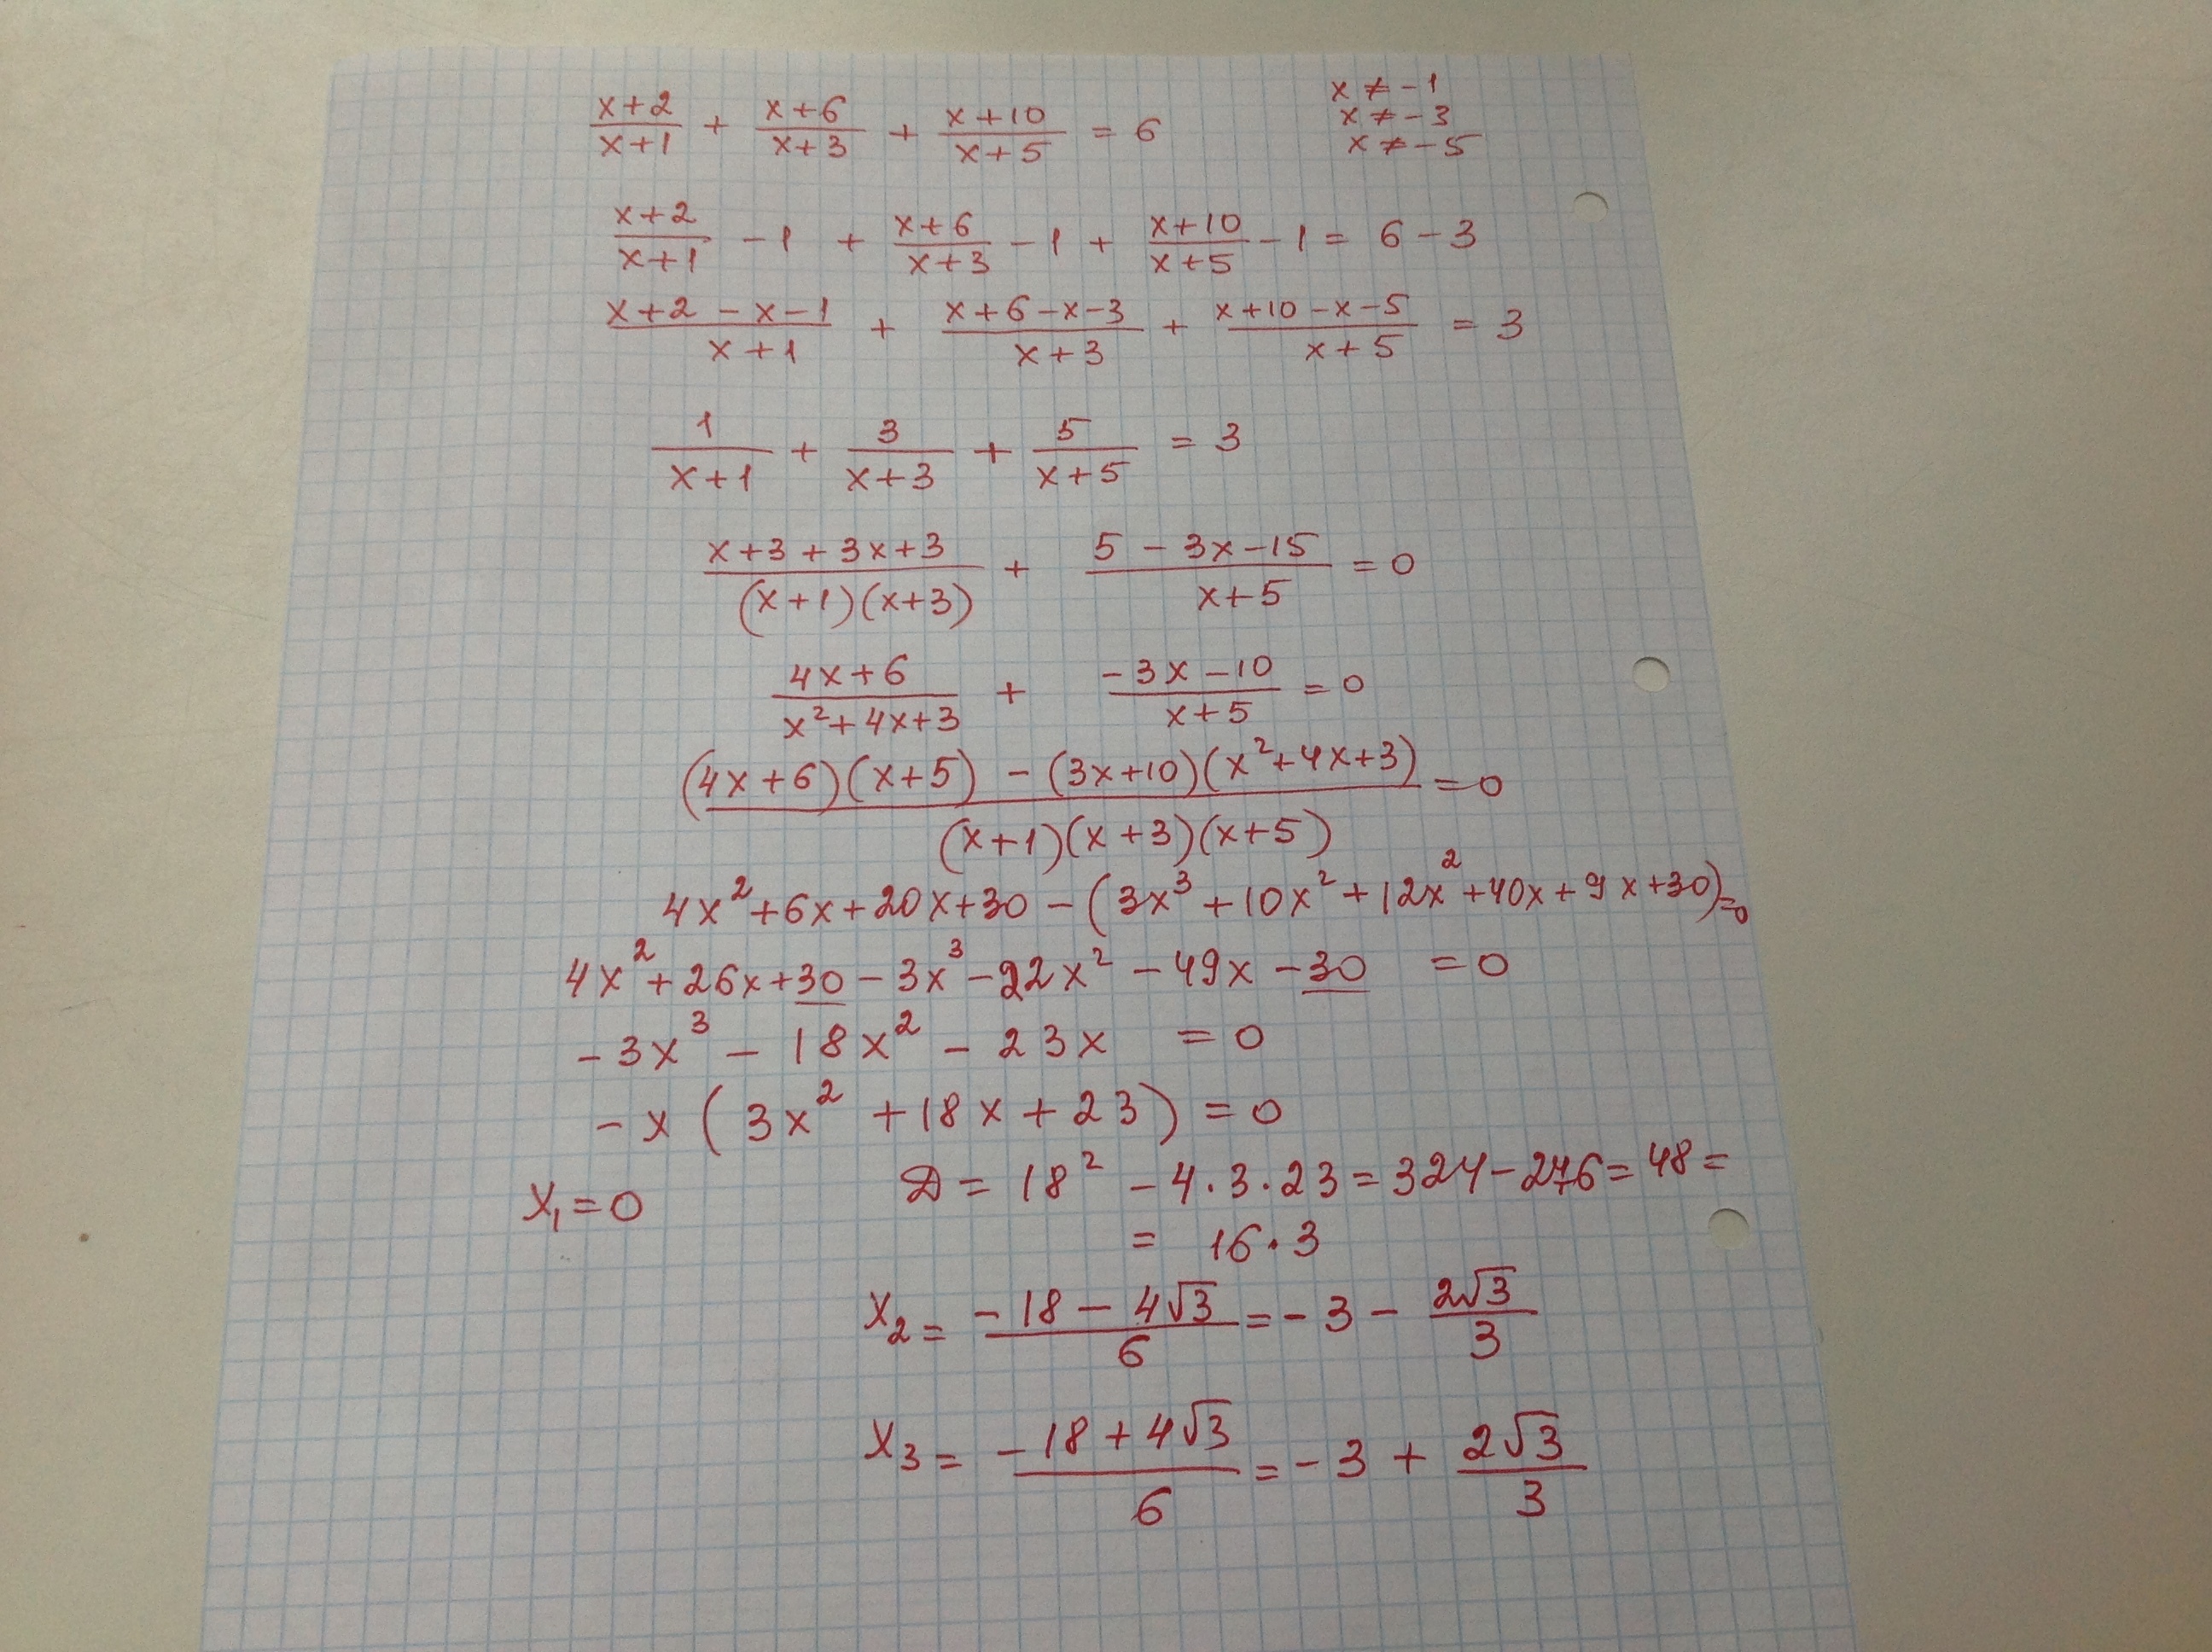 (x+2)/(x+1) + (x+6)/(x+3) + (x+10)/(x+5) = 6
x ≠ -1
x ≠ -3
x ≠ -5
(x+2)/(x+1) - 1 + (x+6)/(x+3) - 1 + (x+10)/(x+5) - 1 = 6 - 3
(x+2-x-1)/(x+1) + (x+6-x-3)/(x+3) + (x+10-x-5)/(x+5) = 3
1/(x+1) + 3/(x+3) + 5/(x+5) = 3
(x+3+3x+3)/((x+1)(x+3)) + (5-3x-15)/(x+5) = 0
(4x+6)/(x²+4x+3) + (-3x-10)/(x+5) = 0
((4x+6)(x+5) - (3x+10)(x²+4x+3))/((x+1)(x+3)(x+5)) = 0
4x²+6x+20x+30 - (3x³+10x²+12x²+40x+9x+30) = 0
4x²+26x+30-3x³-22x²-49x-30 = 0
-3x³ - 18x² - 23x = 0
-x(3x²+18x+23) = 0
x₁ = 0
D = 18² - 4·3·23 = 324 - 276 = 48 =
= 16·3
x₂ = (-18-4√3)/6 = -3 - 2√3/3
x₃ = (-18+4√3)/6 = -3 + 2√3/3